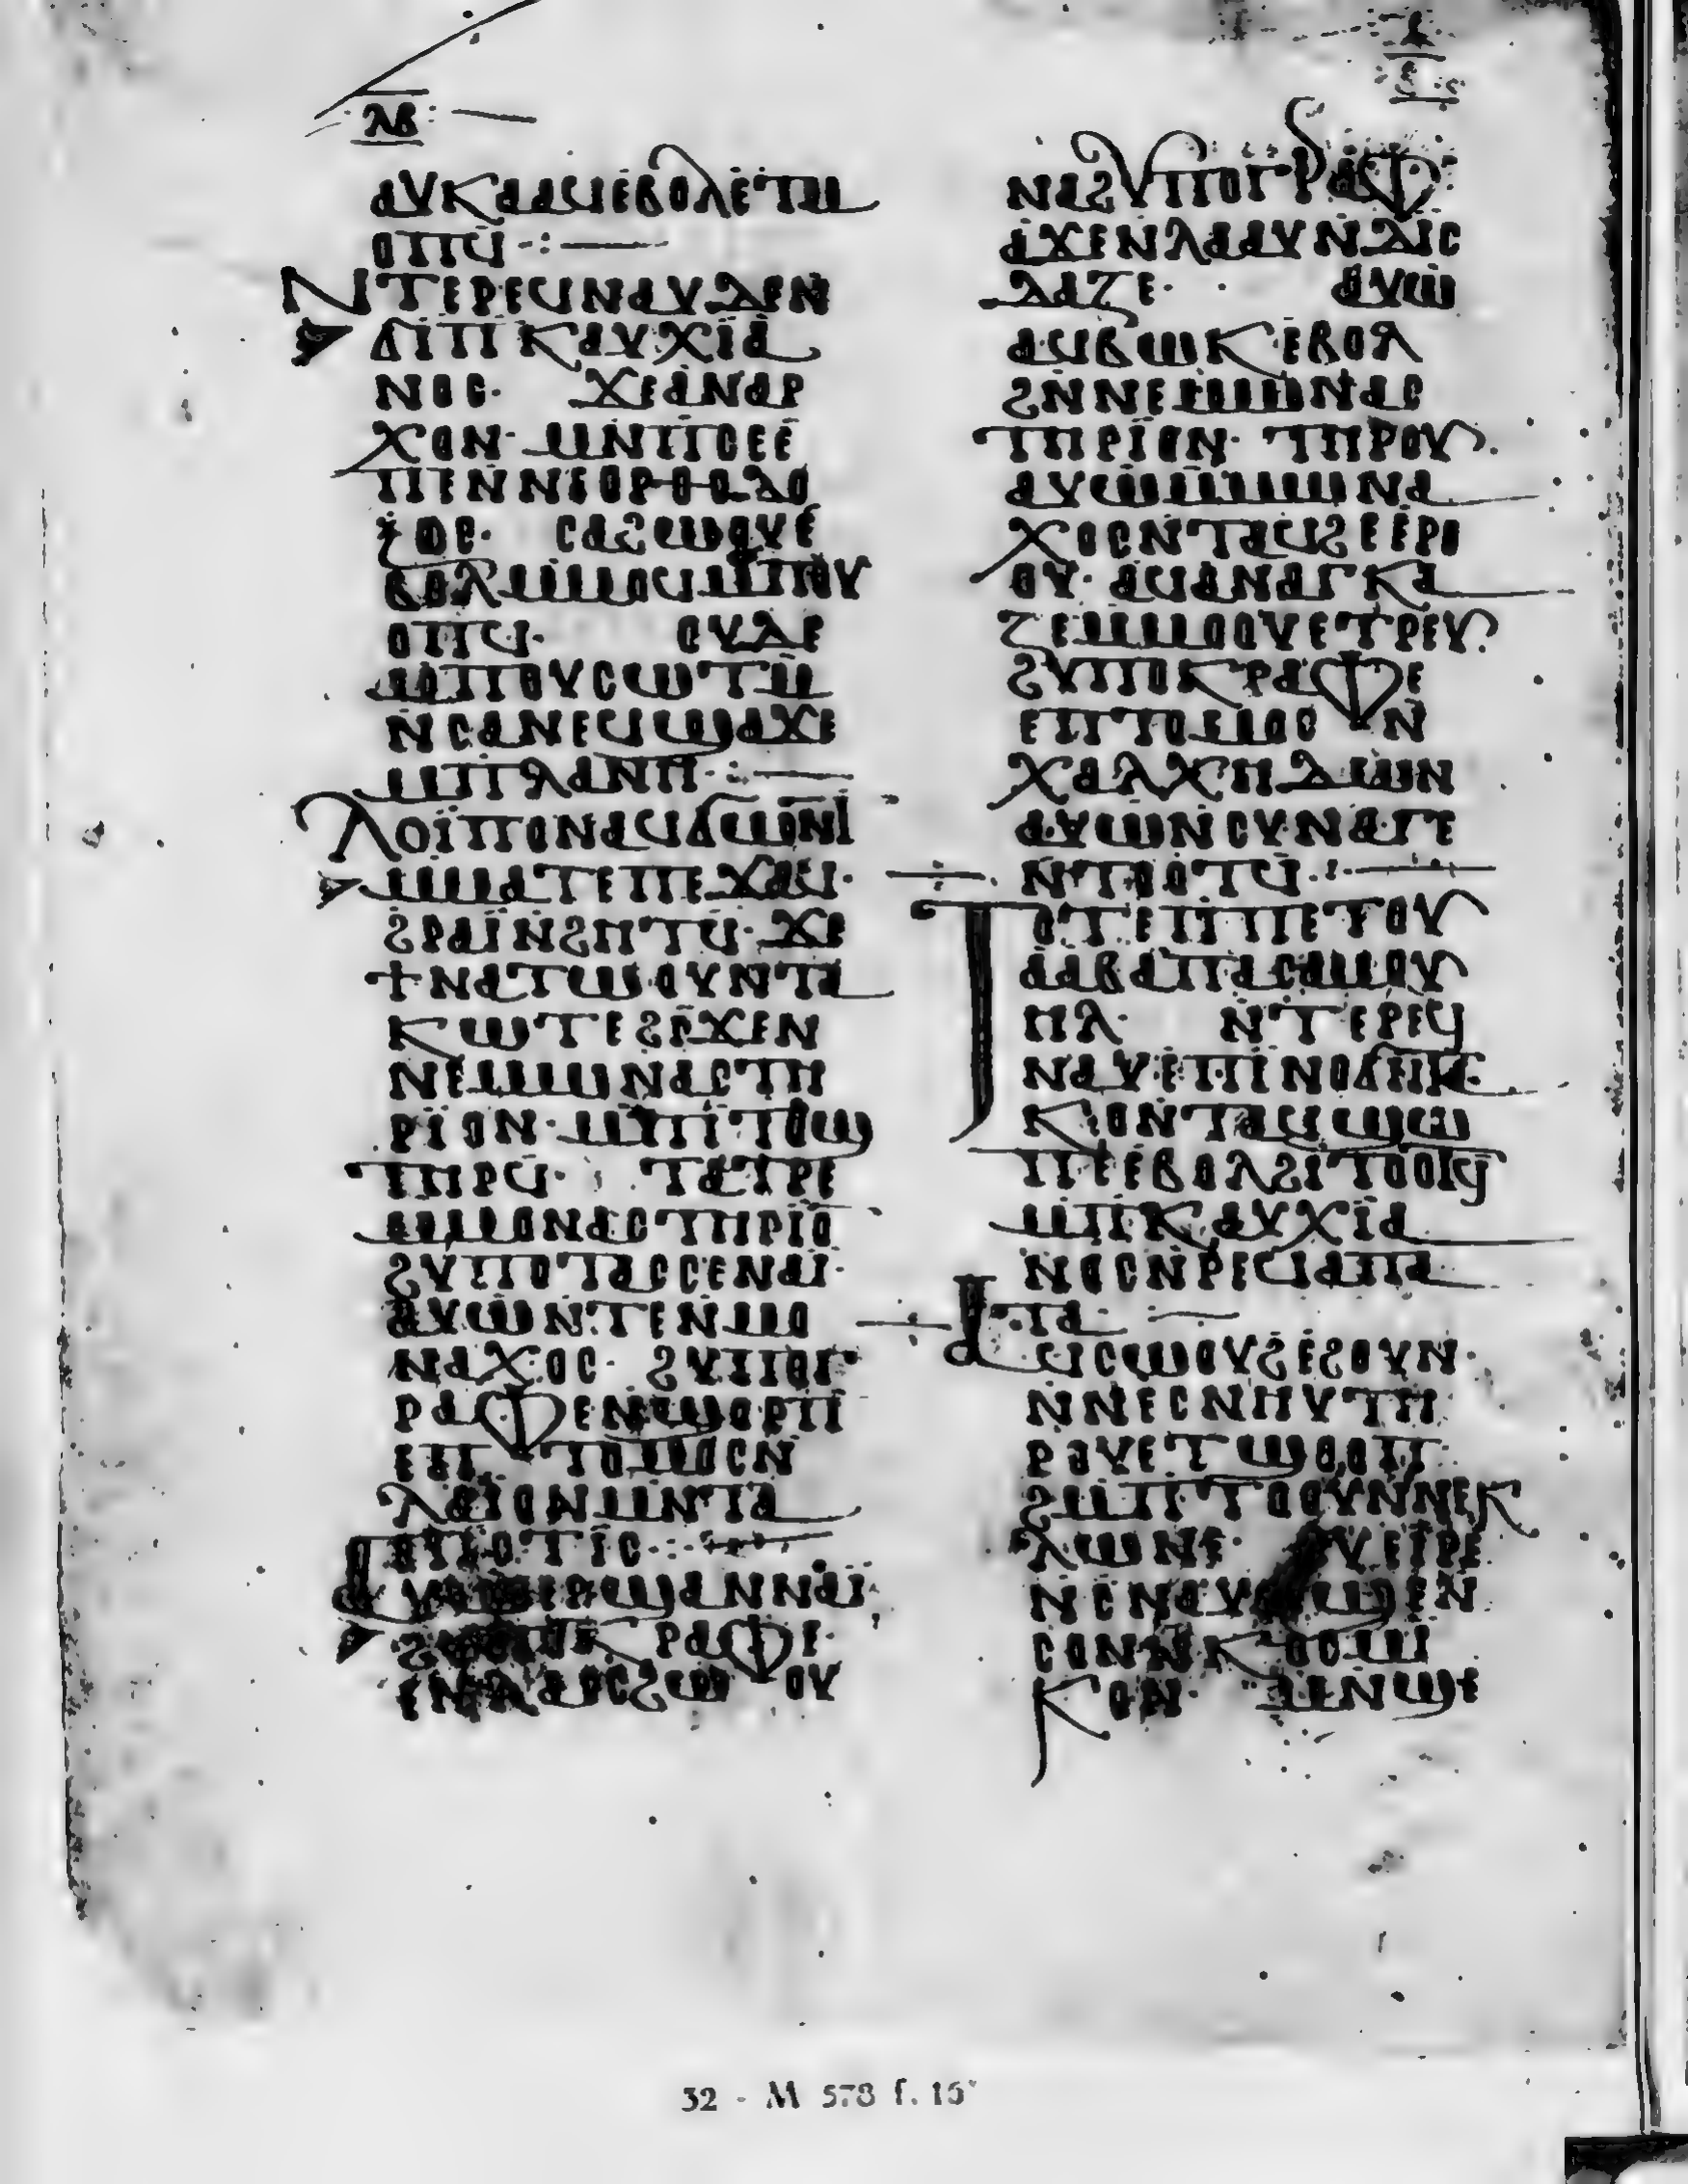 ⲗⲃ
ⲁⲩⲕⲁⲁϥⲉⲃⲟⲗⲉⲧⲙ
ⲟⲡϥ·:—
ⲛⲧⲉⲣⲉϥⲛⲁⲩⲇⲉⲛ
ϭⲓⲡⲕⲁⲩⲭⲓⲁ
ⲛⲟⲥ· ϫⲉⲁⲛⲁⲣ
ⲭⲱⲛ· ⲙⲛⲡⲥⲉⲉ
ⲡⲉⲛⲛⲉⲟⲣⲑⲟⲇⲟ
ⲝⲟⲥ· ⲥⲁϩⲱⲟⲩⲉ
ⲃⲟⲗⲙⲙⲟϥⲙⲡⲟⲩ
ⲟⲡϥ· ⲟⲩⲇⲉ
ⲙⲡⲟⲩⲥⲱⲧⲙ
ⲛⲥⲁⲛⲉϥϣⲁϫⲉ
ⲙⲡⲗⲁⲛⲏ·:—
ⲗⲟⲓⲡⲟⲛⲁϥϭⲱⲛⲧ
ⲙⲙⲁⲧⲉⲡⲉϫⲁϥ·
ϩⲣⲁⲓⲛϩⲏⲧϥ· ϫⲉ
ϯⲛⲁⲧⲱⲟⲩⲛⲧⲁ
ⲕⲱⲧⲉϩⲓϫⲉⲛ
ⲛⲉⲙⲙⲱⲛⲁⲥⲧⲏ
ⲣⲓⲟⲛ· ⲙⲡⲓⲧⲟϣ
ⲧⲏⲣϥ· ⲧⲁⲧⲣⲉ
ⲙⲙⲟⲛⲁⲥⲧⲏⲣⲓⲟ
ϩⲩⲡⲟⲧⲁⲥⲥⲉⲛⲁⲓ·
ⲁⲩⲱⲛⲧⲉⲛⲙⲟ
ⲛⲁⲭⲟⲥ· ϩⲩⲡⲟⲅ
ⲣⲁⲫⲉⲛϣⲟⲣⲡ
ⲉⲡⲧⲟⲙⲟⲥⲛ
ⲗⲉⲱⲛⲙⲛⲧⲁ
ⲡⲓⲥⲧⲓⲥ·:—
ϣⲁⲛⲛⲁⲓ
ϩⲩⲡⲟⲕⲣⲁⲫⲉ·
ⲟⲩ
ⲛⲁϩⲩⲡⲟⲅⲣⲁⲫ
ⲁϫⲉⲛⲗⲁⲁⲩⲛⲇⲓⲥ
ⲇⲁⲍⲉ· ⲁⲩⲱ
ⲁϥⲃⲱⲕⲉⲃⲟⲗ
ϩⲛⲛⲉⲙⲙⲱⲛⲁⲥ
ⲧⲏⲣⲓⲟⲛ· ⲧⲏⲣⲟⲩ·
ⲁⲩⲱⲙⲙⲱⲛⲁ
ⲭⲟⲥⲛⲧⲁϥϩⲉⲉⲣⲟ
ⲟⲩ· ⲁϥⲁⲛⲁⲅⲕⲁ
ⲍⲉⲙⲙⲟⲟⲩⲉⲧⲣⲉⲩ
ϩⲩⲡⲟⲕⲣⲁⲫⲉ
ⲉⲡⲧⲟⲙⲟⲥ ⲛ
ⲭⲁⲗⲭⲏⲇⲱⲛ
ⲁⲩⲱⲛⲥⲩⲛⲁⲅⲉ
ⲛⲧⲟⲟⲧϥ·:—
ⲧⲟⲧⲉⲡⲡⲉⲧⲟⲩ
ⲁⲁⲃⲁⲡⲁⲥⲁⲙⲟⲩ
ⲏⲗ· ⲛⲧⲉⲣⲉϥ
ⲛⲁⲩⲉⲡⲓⲛⲟϭⲛⲕⲉ
ⲕⲓⲟⲛⲧⲁϥϣⲱ
ⲡⲉⲉⲃⲟⲗϩⲓⲧⲟⲟⲧϥ
ⲙⲡⲕⲁⲩⲭⲓⲁ
ⲛⲟⲥⲛⲣⲉϥⲁⲡⲁ
ⲧⲁ·—
ⲁϥⲥⲱⲟⲩϩⲉϩⲟⲩⲛ·
ⲛⲛⲉⲥⲛⲏⲩⲧⲏ
ⲣⲟⲩⲉⲧϣⲟⲟⲡ
ϩⲙⲡⲧⲟⲟⲩⲛⲛⲉⲕ
ⲗⲱⲛⲉ· ⲉⲩⲉⲓⲣⲉ
ⲛⲥⲛⲁⲩ ⲛϣⲉⲛ
ⲥⲟⲛⲛⲕⲟⲥⲙⲓ
ⲕⲟⲛ· ⲙⲛϣⲉ
32 - M 578 f. 16ᵛ